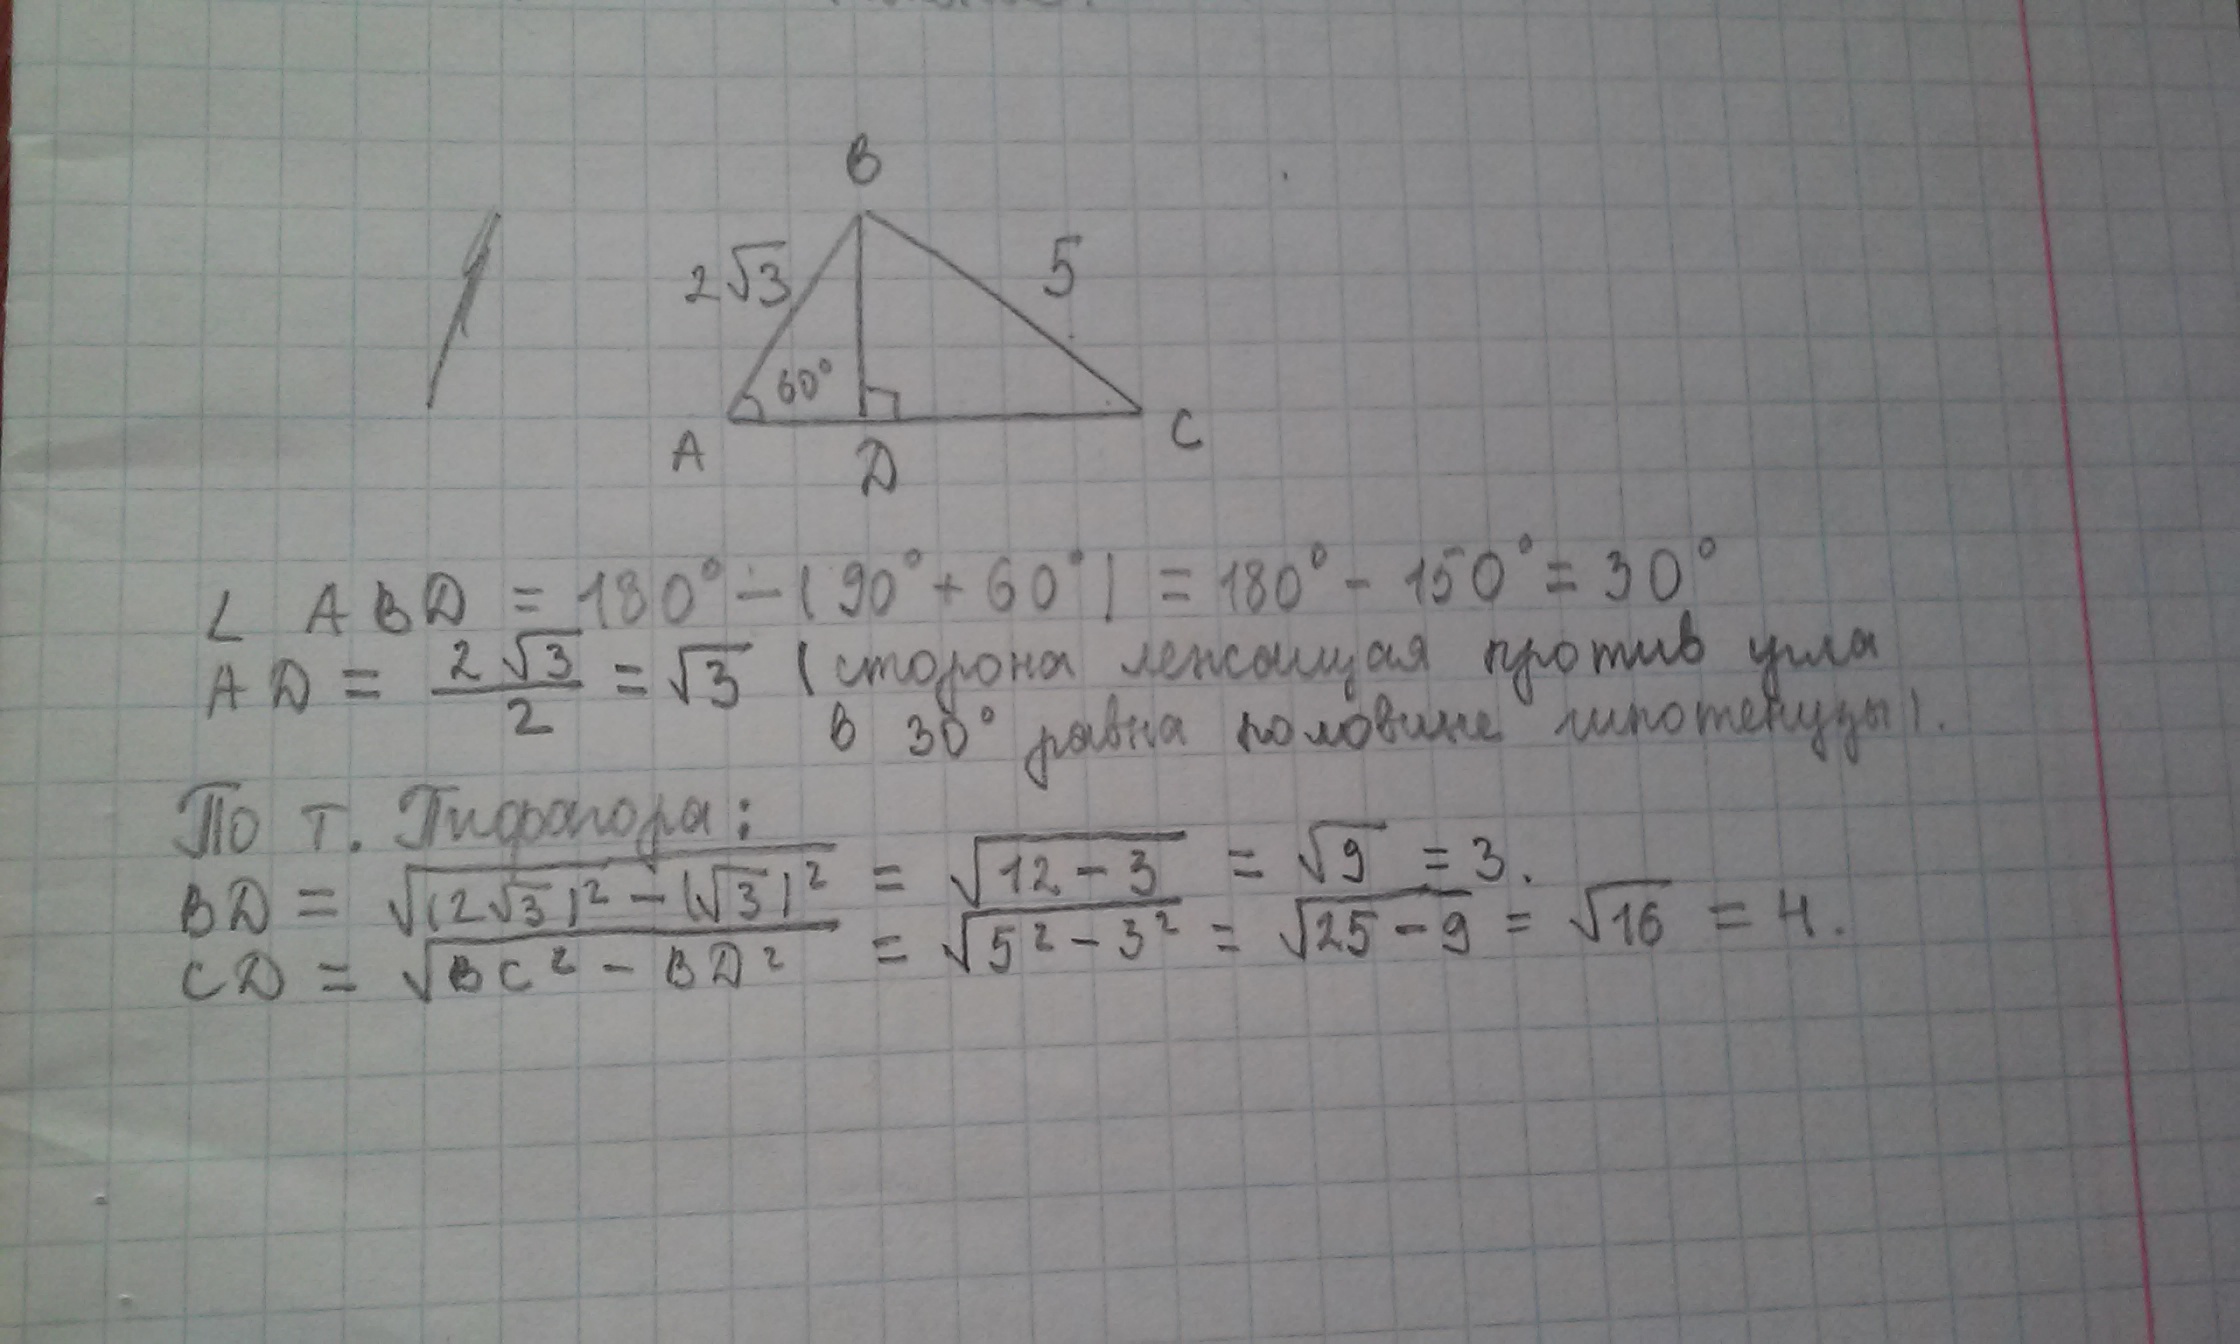 B
2√3
5
60°
A
D
C
∠ ABD = 180° - (90° + 60°) = 180° - 150° = 30°
AD = 2√3/2 = √3 (сторона лежащая против угла
в 30° равна половине гипотенузы).
По т. Пифагора:
BD = √((2√3)² - (√3)²) = √(12 - 3) = √9 = 3.
CD = √(BC² - BD²) = √(5² - 3²) = √(25 - 9) = √16 = 4.